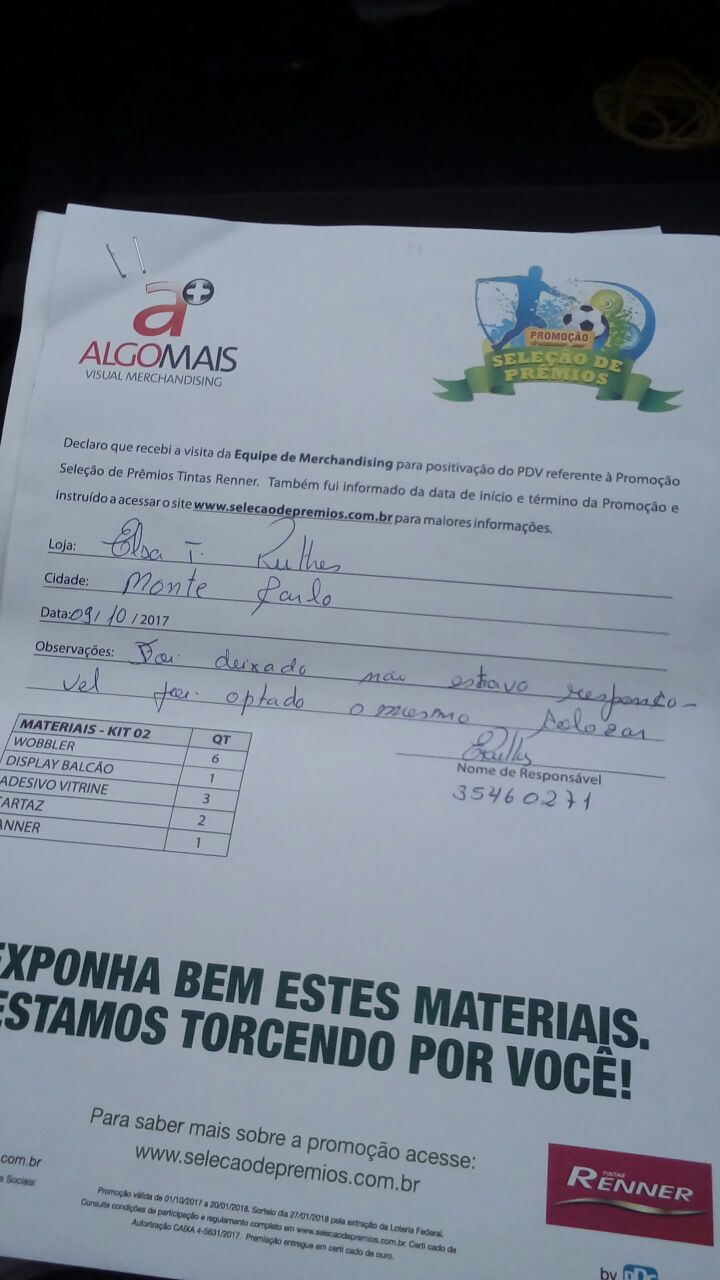 a+
ALGOMAIS
VISUAL MERCHANDISING
PROMOÇÃO
SELEÇÃO DE
PRÊMIOS
Declaro que recebi a visita da Equipe de Merchandising para positivação do PDV referente à Promoção
Seleção de Prêmios Tintas Renner. Também fui informado da data de início e término da Promoção e
instruído a acessar o site www.selecaodepremios.com.br para maiores informações.
Loja: Elsa T.
Cidade: Monte
Data: 09/10/2017
Observações: Foi deixado não estava responsa-
vel foi optado o mesmo
MATERIAIS - KIT 02 QT
WOBBLER 6
DISPLAY BALCÃO 1
ADESIVO VITRINE 3
ARTAZ 2
ANNER 1
Nome de Responsável
35460271
EXPONHA BEM ESTES MATERIAIS.
ESTAMOS TORCENDO POR VOCÊ!
Para saber mais sobre a promoção acesse:
www.selecaodepremios.com.br
com.br
s Sociais:
Promoção válida de 01/10/2017 a 20/01/2018. Sorteio dia 27/01/2018 pela extração da Loteria Federal.
Consulte condições de participação e regulamento completo em www.selecaodepremios.com.br. Certi cado de
Autorização CAIXA 4-5631/2017. Premiação entregue em certi cado de ouro.
TINTAS
RENNER
by PPG